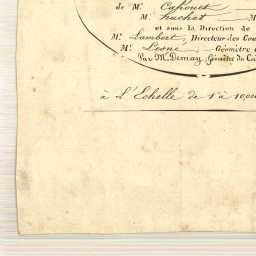 de Mr. Cahouet
Mr. huchet M
et sous la Direction de
Mr. Lambert, Directeur des Con
Mr. Lesne, Géomètre
Par M. Demay, Géomètre du Ca
à l'Echelle de 1 à 10,00